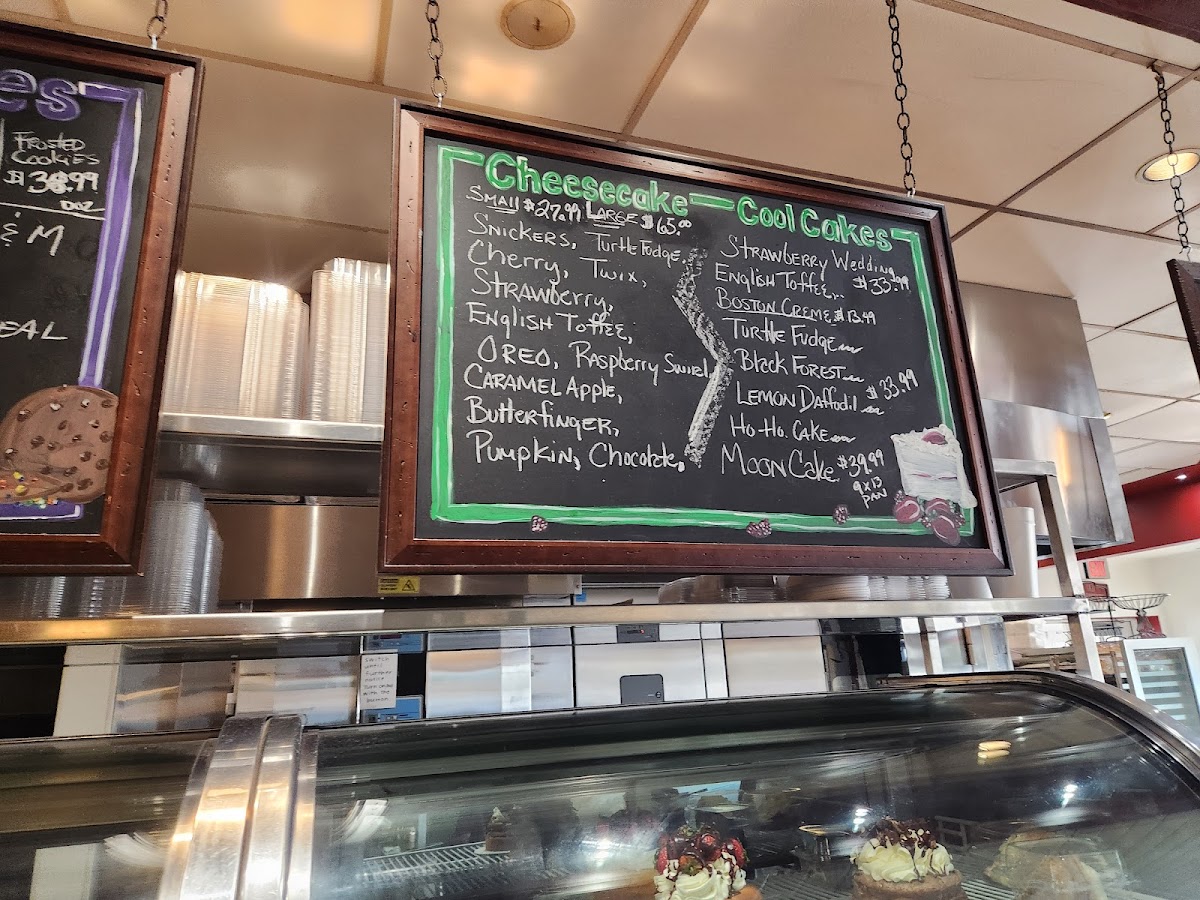 es
FROSTED
COOKIES
$38.99
DOZ
& M
EAL
Cheesecake
SMALL $27.99 LARGE $65.00
SNICKERS, Turtle Fudge,
Cherry, Twix,
STRAWBERRY,
ENGLISH TOFFEE,
OREO, Raspberry Swirl,
CARAMEL Apple,
Butterfinger,
Pumpkin, Chocolate,
Cool Cakes
STRAWBERRY Wedding
ENGLISH Toffee $33.99
BOSTON CREME $13.99
TURTLE Fudge
Black FOREST
LEMON Daffodil $33.99
Ho Ho CAKE
MOON Cake $39.99
9x13
PAN